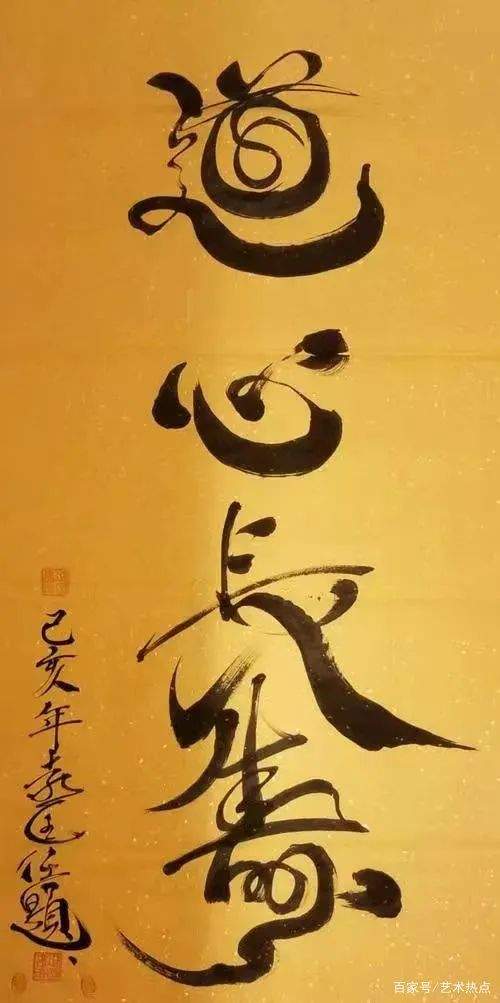 道心長壽
己亥年袁匡佐題
百家号/艺术热点